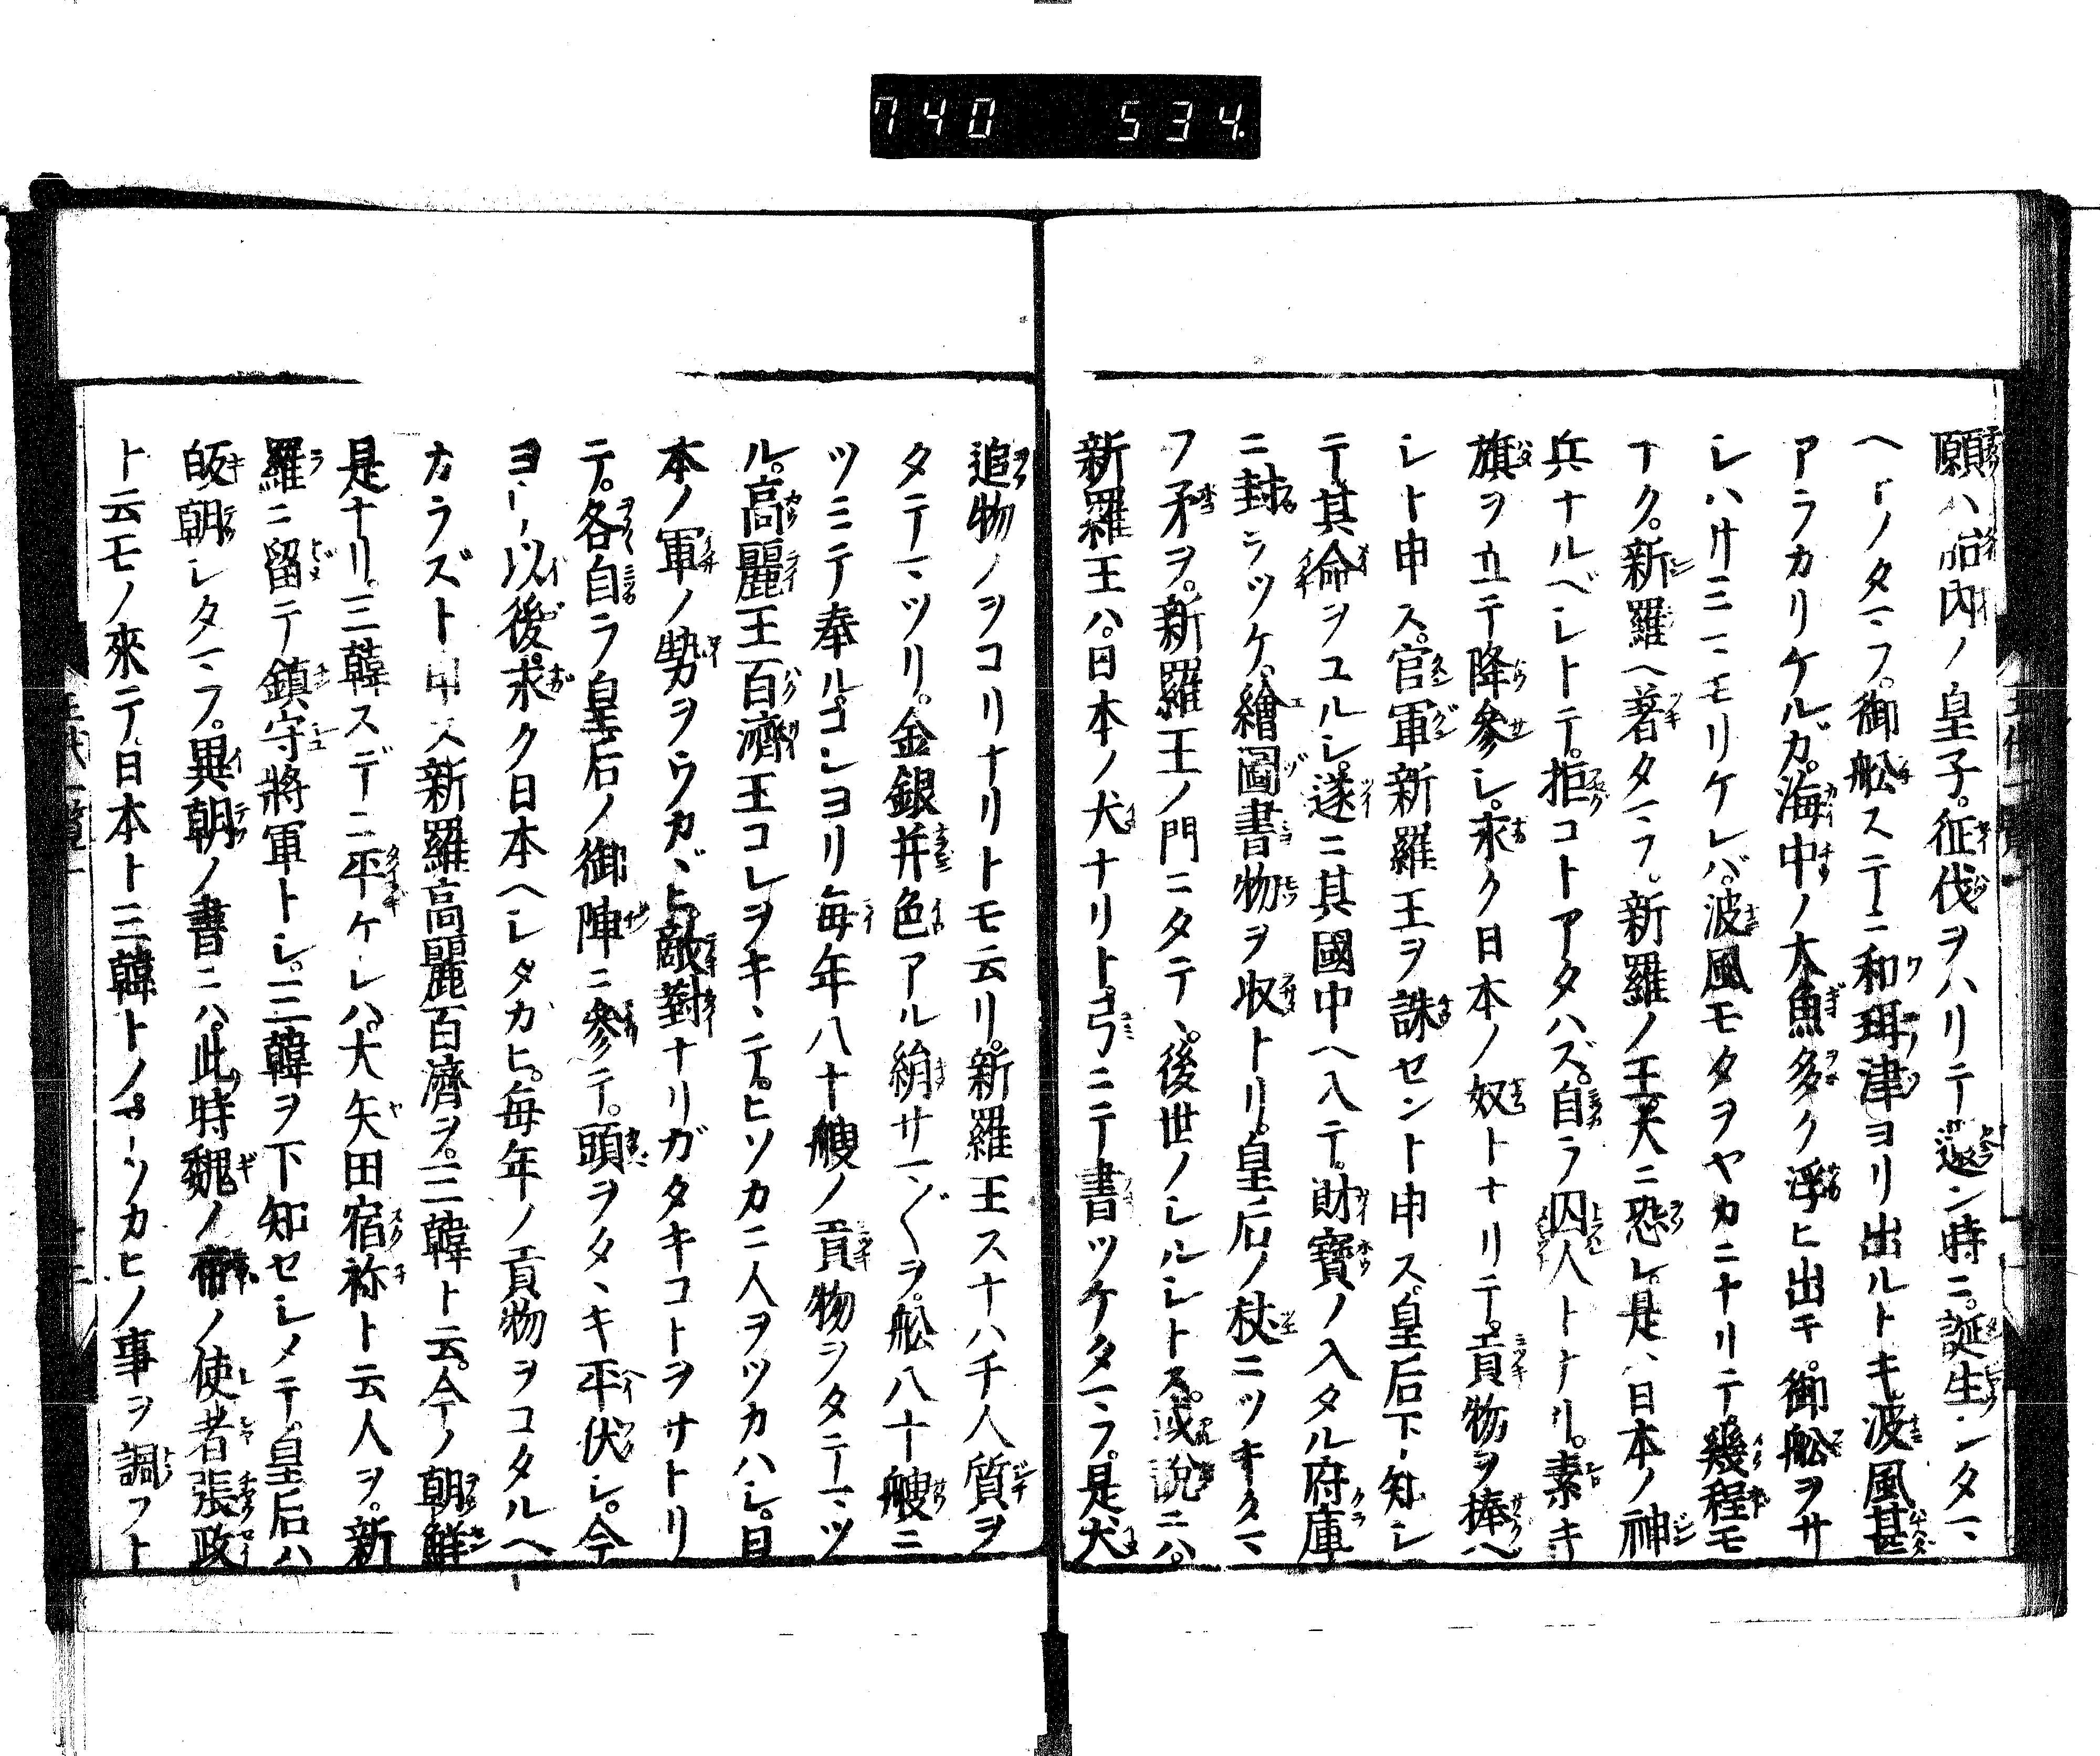 740 534
願ハ胎内ノ皇子。征伐ヲハリテ還ン時ニ。誕生シタマ
ヘトノタマフ。御舩ステニ和珥津ヨリ出ルトキ。波風甚
アラカリケルガ。海中ノ大魚多ク浮ヒ出テ。御舩ヲサ
シハサミマモリケレバ。波風モタヲヤカニナリテ。幾程モ
ナク。新羅ヘ著タマフ。新羅ノ王大ニ恐レ。是ハ日本ノ神
兵ナルベシトテ。拒コトアタハズ。自ラ囚人トナリ。素キ
旗ヲ立テ降參シ。永ク日本ノ奴トナリテ。貢物ヲ捧ヘ
シト申ス。官軍新羅王ヲ誅セント申ス。皇后下知シ
テ其命ヲユルシ。遂ニ其國中ヘ入テ。財寶ノ入タル府庫
ニ封ヲツケ。繪圖書物ヲ收トリ。皇后ノ杖ニツキタマ
フ矛ヲ。新羅王ノ門ニタテヽ。後世ノシルシトス。或說ニハ。
新羅王ハ。日本ノ犬ナリト。弓ニテ書ツケタマフ。是犬
追物ノヲコリナリトモ云リ。新羅王スナハチ人質ヲ
タテマツリ。金銀并色アル絹サマ〴〵ヲ。舩八十艘ニ
ツミテ奉ル。コレヨリ每年八十艘ノ貢物ヲタテマツ
ル。高麗王百濟王コレヲキヽテ。ヒソカニ人ヲツカハシ。日
本ノ軍ノ勢ヲウカヾヒ。敵對ナリガタキコトヲサトリ
テ。各自ラ皇后ノ御陣ニ參テ。頭ヲタヽキ平伏シ。今
ヨリ以後。永ク日本ヘシタカヒ。每年ノ貢物ヲコタルヘ
カラズト申ス新羅高麗百濟ヲ。三韓ト云。今ノ朝鮮
是ナリ。三韓スデニ平ケレハ。大矢田宿祢ト云人ヲ。新
羅ニ留テ鎮守將軍トシ。三韓ヲ下知セシメテ。皇后ハ
皈朝シタマフ。異朝ノ書ニハ。此時魏ノ帝ノ使者張政
ト云モノ來テ。日本ト三韓トノアツカヒノ事ヲ調フト